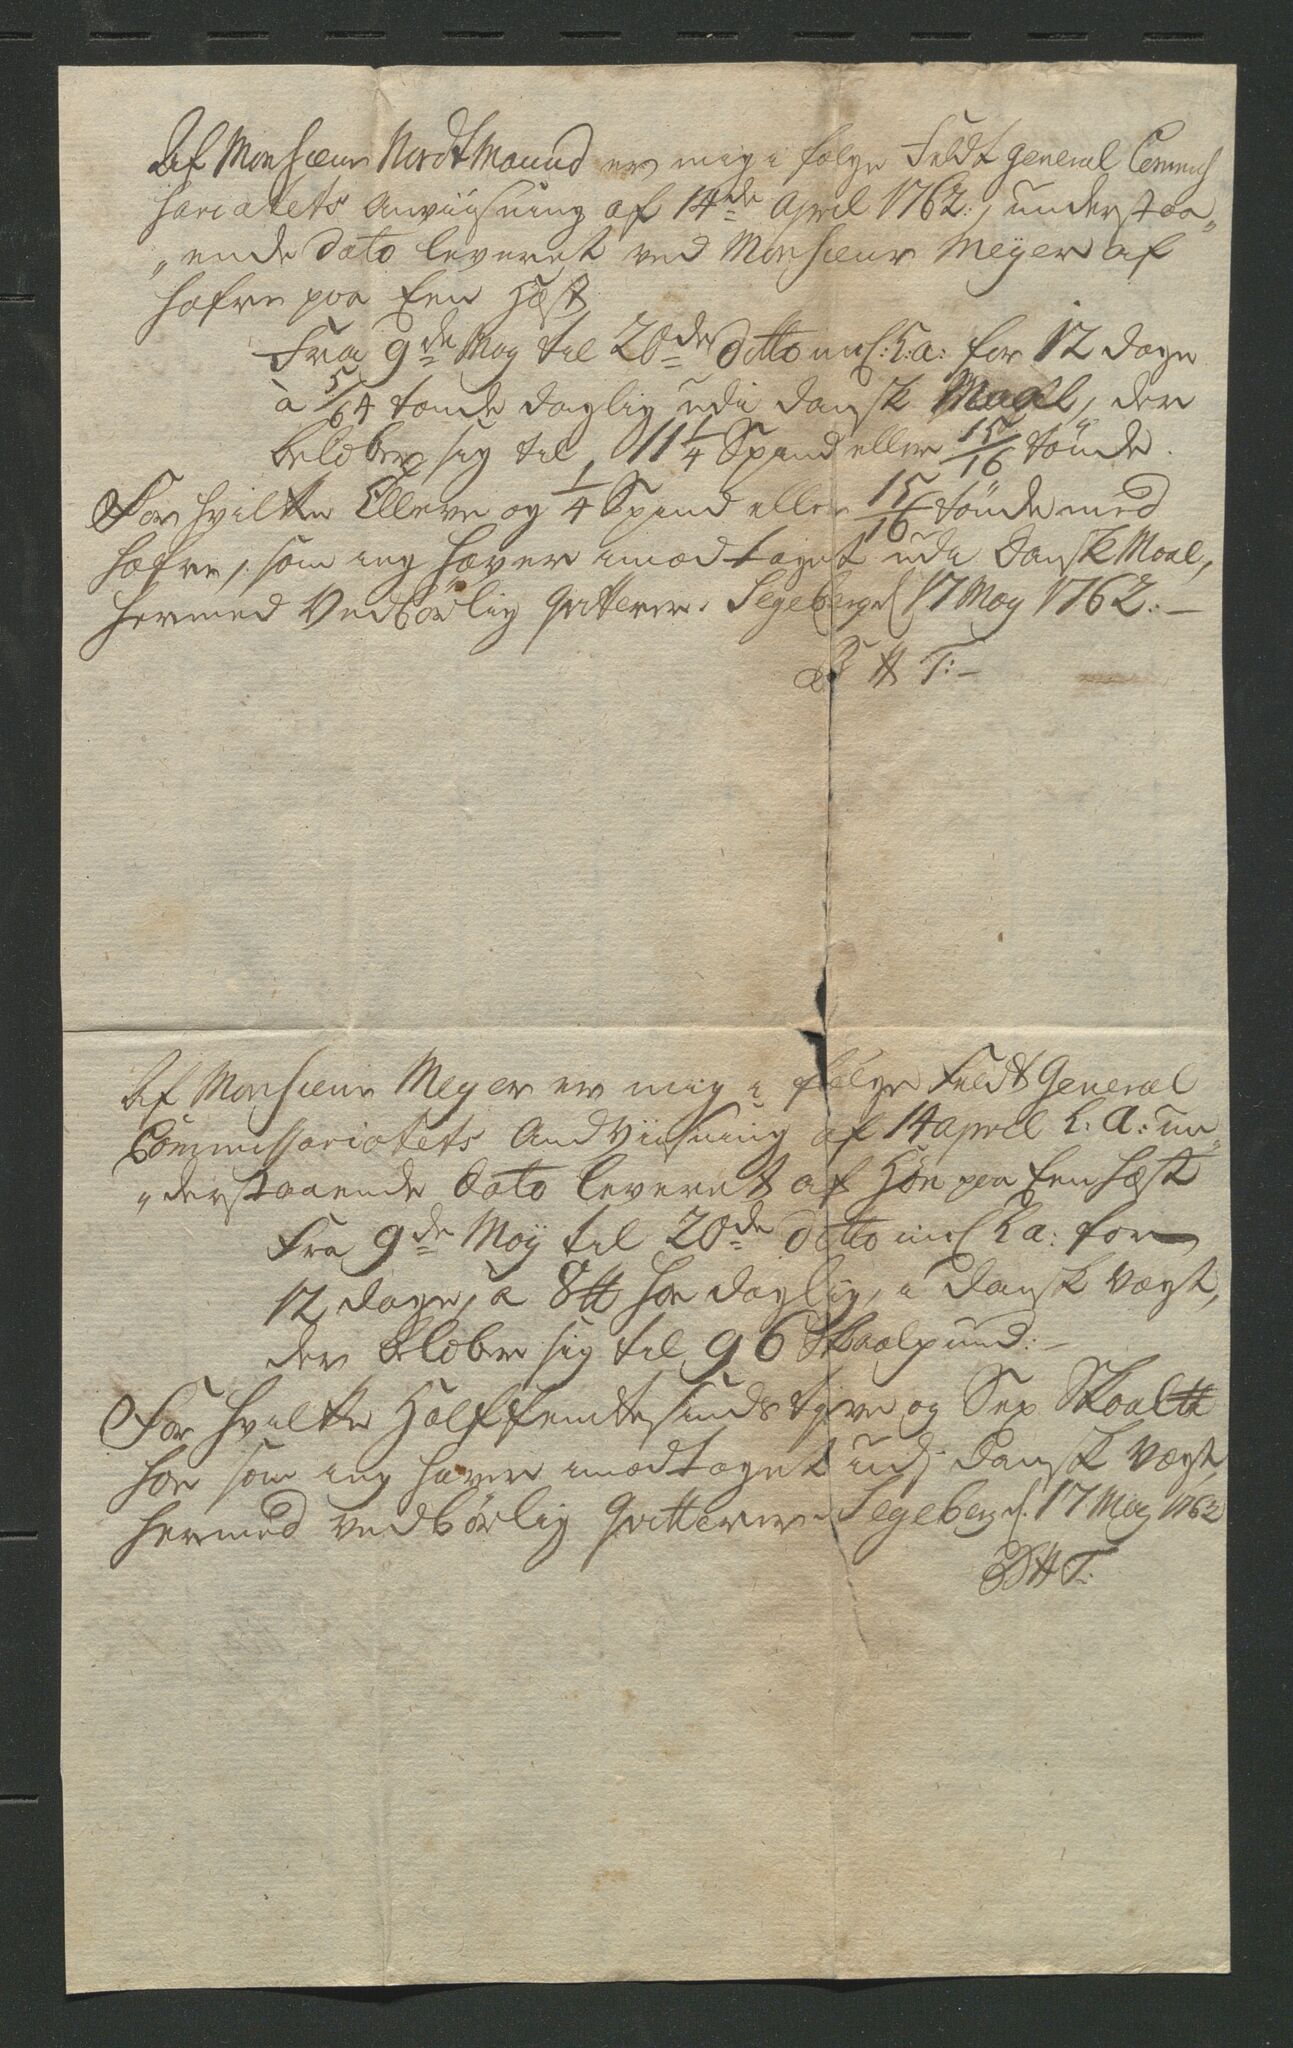 Af Monsieur Nordtmand er mig i følge Feldt General Commis
sariatets Anviisning af 14de April 1762, understaa„
„ende Dato leveret ved Monsieur Meÿer af
Hafre paa Een Hæst,
Fra 9de Maÿ til 20de ditto incl: h: a: for 12 dage
à 5/64 tønde daglig udi Dansk Maal, der
beløber sig til 11 1/4 Spand eller 15/16 tønde.
For hvilke Elleve og 1/4 Spand eller 15/16 tønde med
Hafre, som ieg haver imodtaget udi Dansk Maal,
hermed Vedbørlig qvitterer. Segeberg d 17 May 1762.—
B H T:—
Af Monsieur Meyer er mig i følge Feldt General
Commissariatets Andviisning af 14 april h: a: un„
„derstaaende Dato leveret af Høe paa Een Hæst
Fra 9de Maÿ til 20de ditto incl h a: for
12 dage, a 8 ℔ Høe daglig, i Dansk Vægt,
der beløber sig til 96 Skaalpund:—
For hvilke Halffemtesindstyve og Sex Skaal℔
Høe som ieg haver imodtaget udj Dansk Vægt,
hermed vedbørlig qvitterer. Segeberg d. 17 May 1762
B H T: